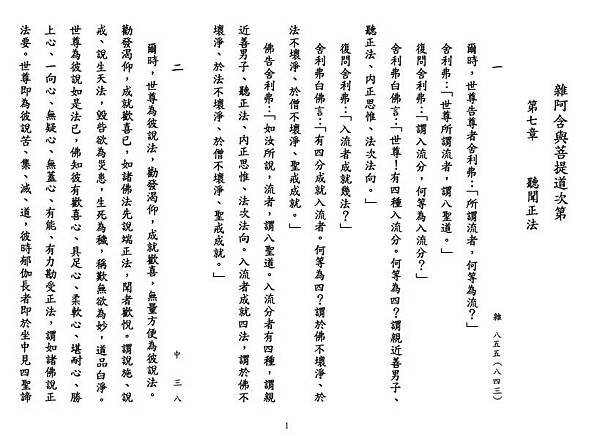 雜阿含與菩提道次第
第七章　聽聞正法
一　雜 八五五(八四三)
爾時，世尊告尊者舍利弗：「所謂流者，何等為流？」
舍利弗：「世尊所謂流者，謂八聖道。」
復問舍利弗：「謂入流分，何等為入流分？」
舍利弗白佛言：「世尊！有四種入流分。何等為四？謂親近善男子、
聽正法、內正思惟、法次法向。」
復問舍利弗：「入流者成就幾法？」
舍利弗白佛言：「有四分成就入流者。何等為四？謂於佛不壞淨、於
法不壞淨、於僧不壞淨、聖戒成就。」
佛告舍利弗：「如汝所說，流者，謂八聖道。入流分者有四種，謂親
近善男子、聽正法、內正思惟、法次法向。入流者成就四法，謂於佛不
壞淨、於法不壞淨、於僧不壞淨、聖戒成就。」
二　中 三八
爾時，世尊為彼說法，勸發渴仰，成就歡喜，無量方便為彼說法。
勸發渴仰，成就歡喜已，如諸佛法先說端正法，聞者歡悅。謂說施、說
戒、說生天法，毀呰欲為災患，生死為穢，稱歎無欲為妙，道品白淨。
世尊為彼說如是法已，佛知彼有歡喜心、具足心、柔軟心、堪耐心、勝
上心、一向心、無疑心、無蓋心、有能、有力勘受正法，謂如諸佛說正
法要。世尊即為彼說苦、集、滅、道，彼時郁伽長者即於坐中見四聖諦
1